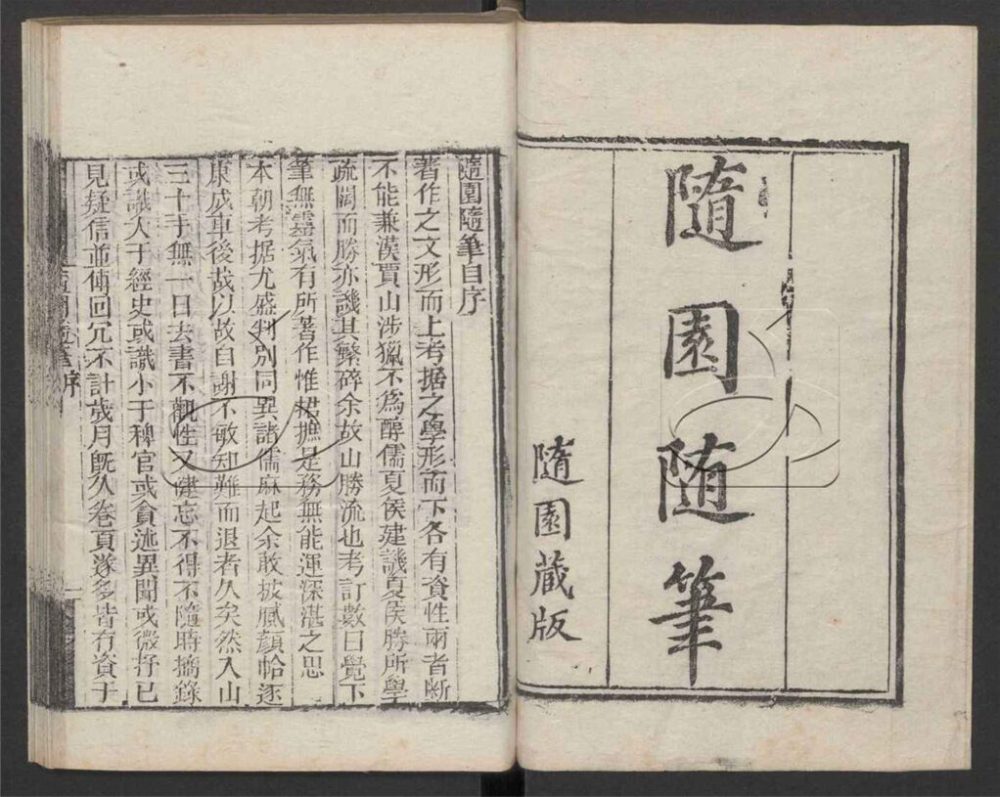 隨園隨筆
隨園藏版
隨園隨筆自序
著作之文形而上考據之學形而下各有資性兩者斷
不能兼漢賈山涉獵不為醇儒夏侯建譏夏侯勝所學
疏闊而勝亦譏其繁碎余故山勝流也考訂數日覺下
筆無靈氣有所著作惟捃摭是務無能運深湛之思
本朝考据尤盛判別同異諸儒麻起余敢披膩顏帢逐
康成車後哉以故自謝不敏知難而退者久矣然入山
三十年無一日去書不觀性又健忘不得不隨時摘錄
或識大于經史或識小于稗官或貪述異聞或微抒已
見疑信並傳回冗不計歲月既久卷頁遂多皆有資于
隨園隨筆序
一